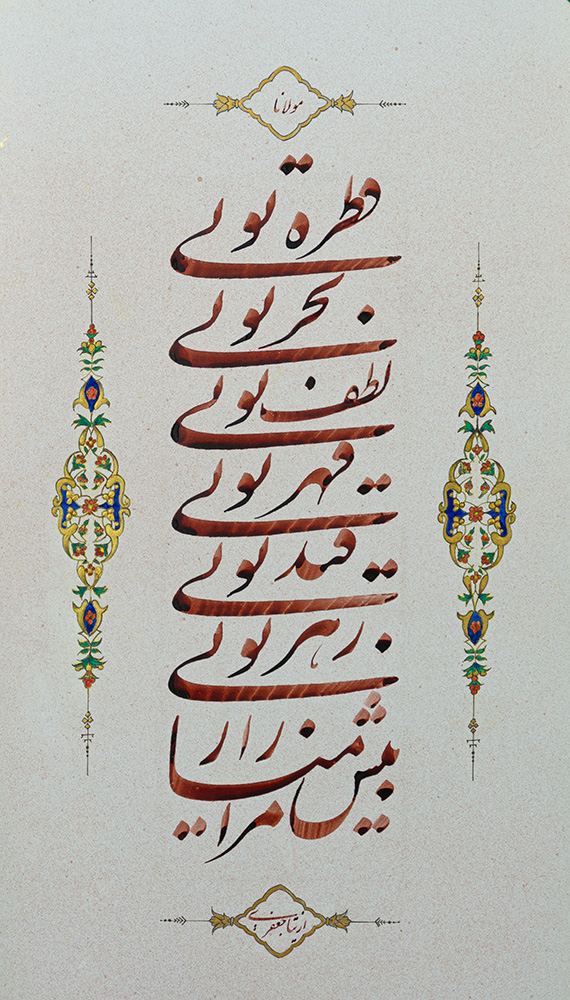 مولانا
قطره تویی
بحر تویی
لطف تویی
قهر تویی
قند تویی
زهر تویی
بیش میازار مرا
ازیتا جعفری